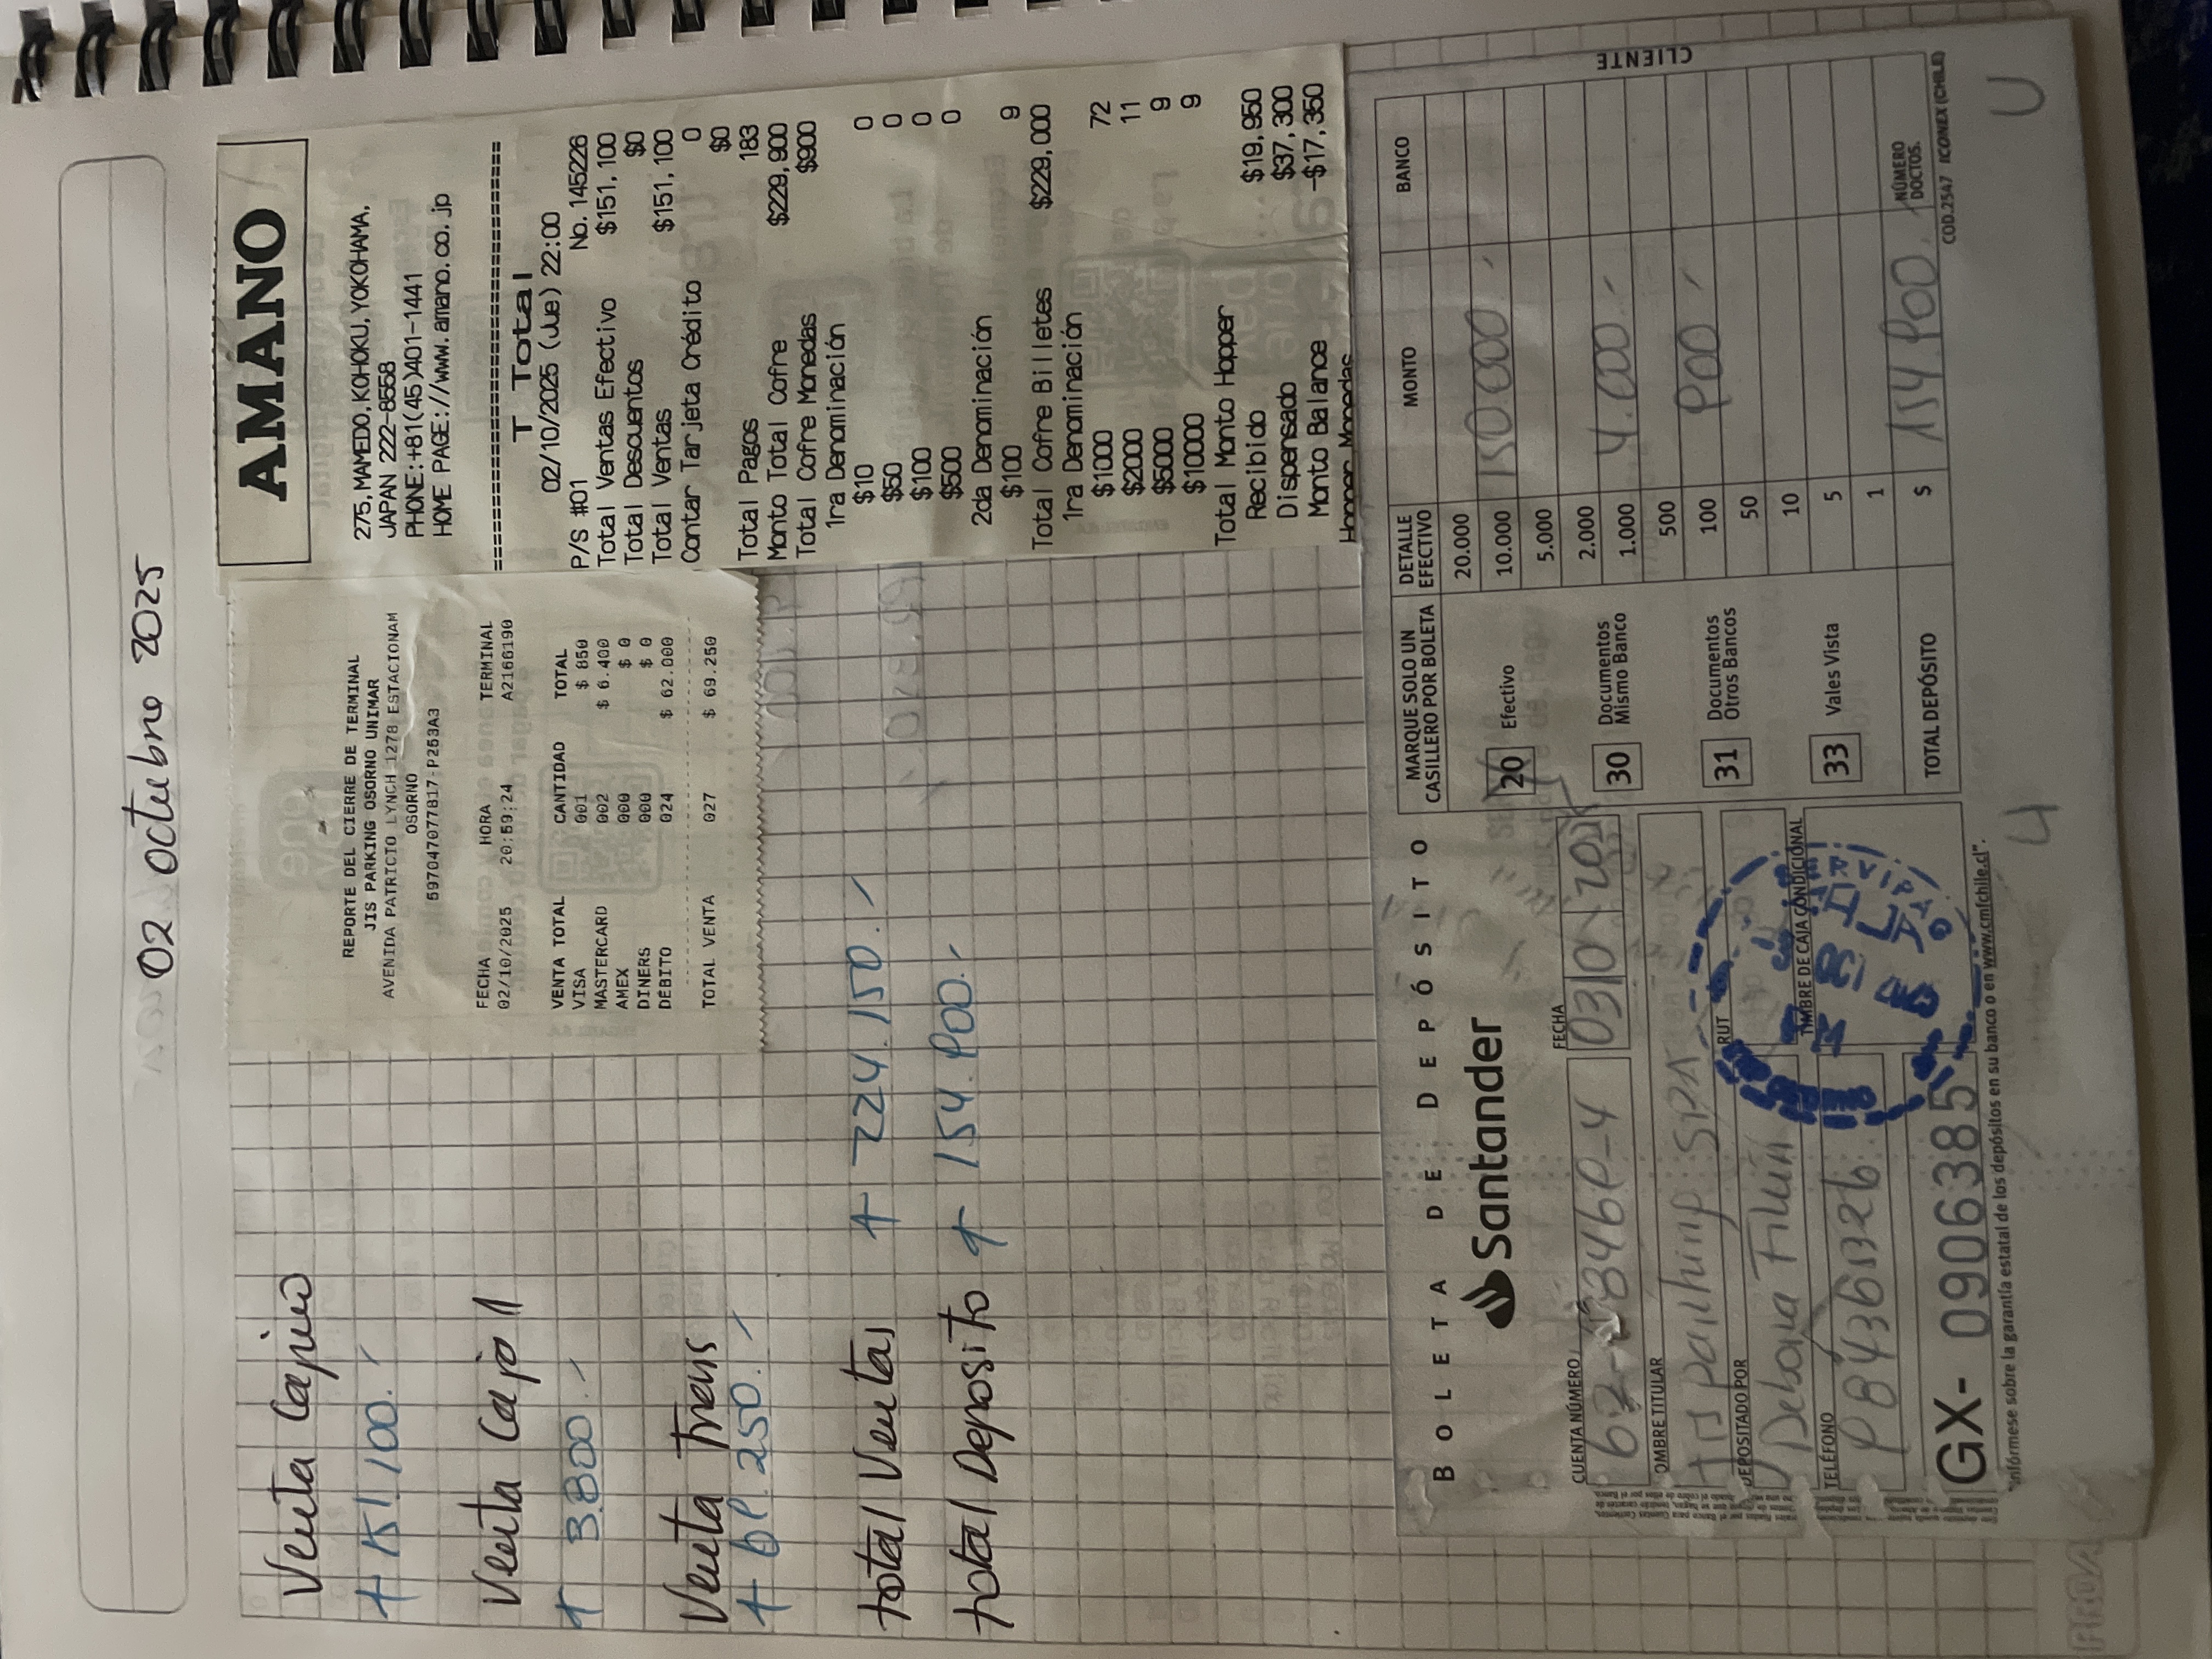 02 octubre 2025
Venta Cajero
$ 151.100.-
Venta Cajo II
$ 3.800.-
Venta Trans
$ 69.250.-
total Ventas $ 224.150.-
total Deposito $ 154.900.-
REPORTE DEL CIERRE DE TERMINAL
JIS PARKING OSORNO UNIMAR
AVENIDA PATRICIO LYNCH 1278 ESTACIONAM
OSORNO
597047077817-P253A3
FECHA HORA TERMINAL
02/10/2025 20:59:24 A2166190
VENTA TOTAL CANTIDAD TOTAL
VISA 001 $ 850
MASTERCARD 002 $ 6.400
AMEX 000 $ 0
DINERS 000 $ 0
DEBITO 024 $ 62.000
TOTAL VENTA 027 $ 69.250
AMANO
275, MAMEDO, KOHOKU, YOKOHAMA,
JAPAN 222-8558
PHONE:+81(45)401-1441
HOME PAGE://www.amano.co.jp
==========================================
T Total
02/10/2025 (Jue) 22:00
P/S #01 No. 145226
Total Ventas Efectivo $151,100
Total Descuentos $0
Total Ventas $151,100
Contar Tarjeta Crédito 0
$0
Total Pagos 183
Monto Total Cofre $229,900
Total Cofre Monedas $900
1ra Denominación
$10 0
$50 0
$100 0
$500 0
2da Denominación
$100 9
Total Cofre Billetes $229,000
1ra Denominación
$1000 72
$2000 11
$5000 9
$10000 9
Total Monto Hopper
Recibido $19,950
Dispensado $37,300
Monto Balance -$17,350
Hopper Monedas
BOLETA DE DEPÓSITO
Santander
CUENTA NÚMERO FECHA
03 10 202
OMBRE TITULAR
SPA
RUT
DEPOSITADO POR
Debora
TELÉFONO
TIMBRE DE CAJA CONDICIONAL
GX- 0906385
"Infórmese sobre la garantía estatal de los depósitos en su banco o en www.cmfchile.cl".
MARQUE SOLO UN CASILLERO POR BOLETA
20 Efectivo
30 Documentos Mismo Banco
31 Documentos Otros Bancos
33 Vales Vista
TOTAL DEPÓSITO
DETALLE EFECTIVO MONTO BANCO
20.000
10.000 150.000.-
5.000
2.000
1.000 4.000.-
500
100 900.-
50
10
5
1
$ 154.900.- NÚMERO DOCTOS.
CLIENTE
COD.2547 ICONEX (CHILE)